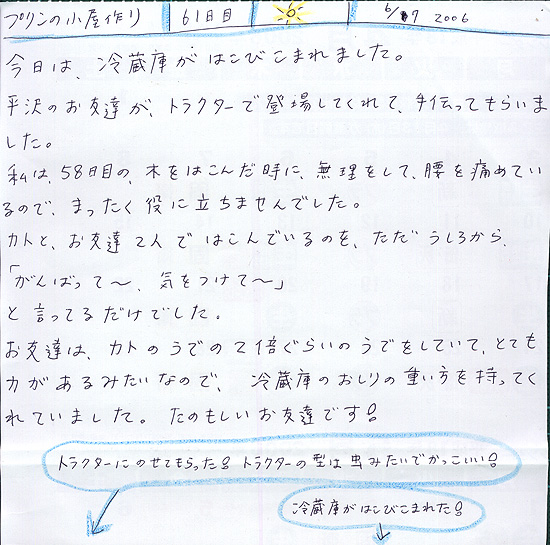 プリンの小屋作り 61日目 6/7 2006
今日は、冷蔵庫がはこびこまれました。
平沢のお友達が、トラクターで登場してくれて、手伝ってもらいま
した。
私は、58日目の、木をはこんだ時に、無理をして、腰を痛めてい
るので、まったく役に立ちませんでした。
カトと、お友達2人ではこんでいるのを、ただうしろから、
「がんばって〜、気をつけて〜」
と言ってるだけでした。
お友達は、カトのうでの2倍ぐらいのうでをしていて、とても
力があるみたいなので、冷蔵庫のおしりの重い方を持ってく
れていました。たのもしいお友達です!
トラクターにのせてもらった!トラクターの型は虫みたいでかっこいい!
冷蔵庫がはこびこまれた!